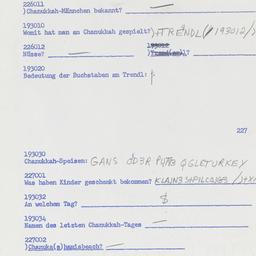 226011
)Chanukkah-Männchen bekannt?
193010
Womit hat man an Chanukkah gespielt? )+TRENDL (193012/)
226012
Nüsse?
193020
Bedeutung der Buchstaben am Trendl:
227
193030
Chanukkah-Speisen: GANS ODER TURKEY
227001
Was haben Kinder geschenkt bekommen?
193032
An welchem Tag?
193034
Namen des letzten Chanukkah-Tages
227002
)Chanuka(s)hamisbeach?